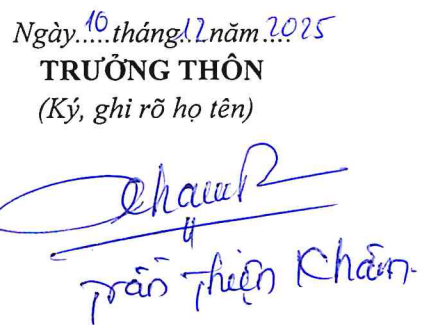 Ngày.....10.....tháng.12.năm.2025
TRƯỞNG THÔN
(Ký, ghi rõ họ tên)
Trần Thiện Khâm